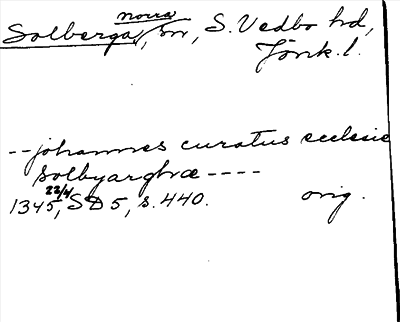 norra
Solberga, sn, S. Vedbo hd,
Jönk. l.
--johannes curatus ecclesie
solbyarghæ ----
22/4
1345, SD 5, s. 440. orig.